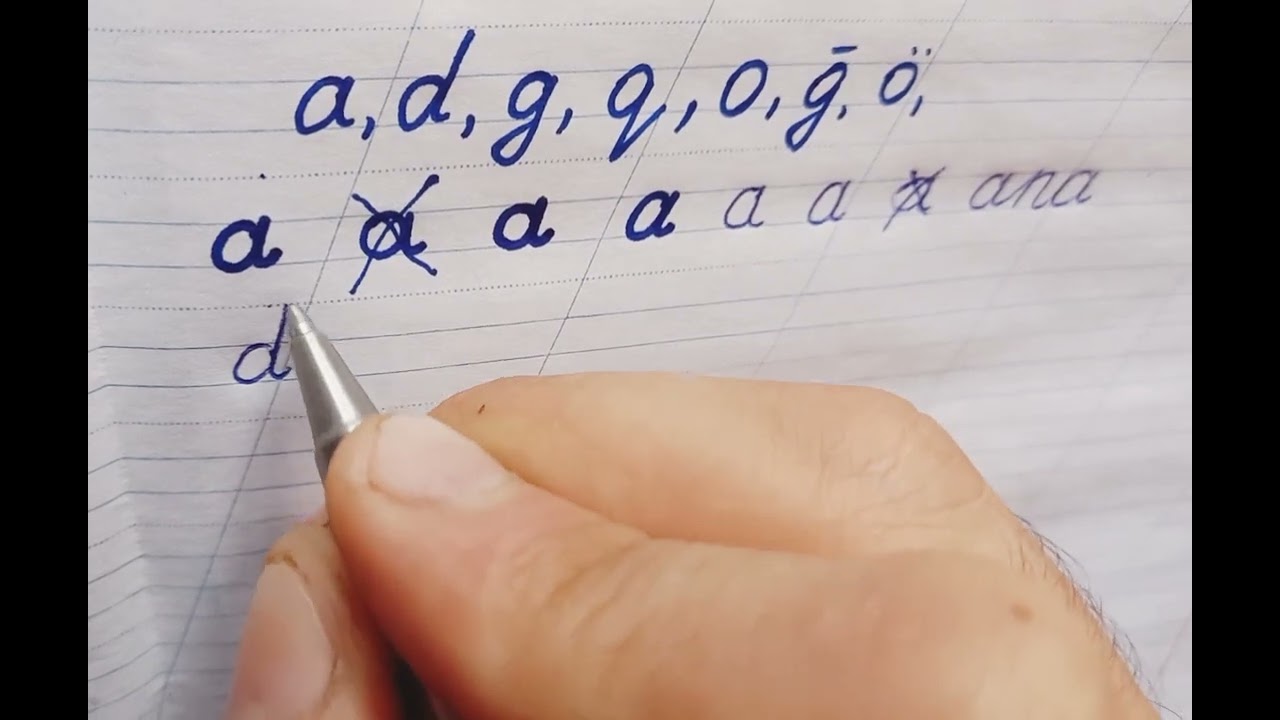 a, d, g, q, o, ḡ, ö,
a a a a a a a ana
d